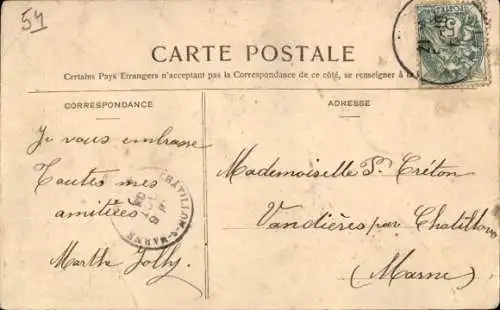 54
CARTE POSTALE
Certains Pays Etrangers n'acceptant pas la Correspondance de ce côté, se renseigner à la
CORRESPONDANCE
Je vous embrasse
Toutes mes
amitiées
Marthe Jolly.
CHATILLON-S-MARNE
ADRESSE
Mademoiselle S. Créton
Vandières par Chatillon
(Marne)